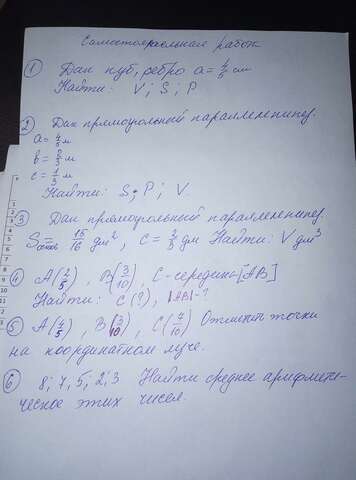 Самостоятельная работа
① Дан куб, ребро a = 4/5 см
Найти: V; S; P
② Дан прямоугольный параллелепипед.
a = 4/5 м
b = 2/3 м
c = 1/3 м
Найти: S; P; V.
③ Дан прямоугольный параллелепипед.
Sоснов = 15/16 дм², c = 2/3 дм Найти: V дм³
④ A(2/5), B(3/10), C - середина [AB]
Найти: C(?), |AB| - ?
⑤ A(4/5), B(3/10), C(7/10) Отметить точки
на координатном луче.
⑥ 8; 7, 5; 2; 3 Найти среднее арифмети-
ческое этих чисел.